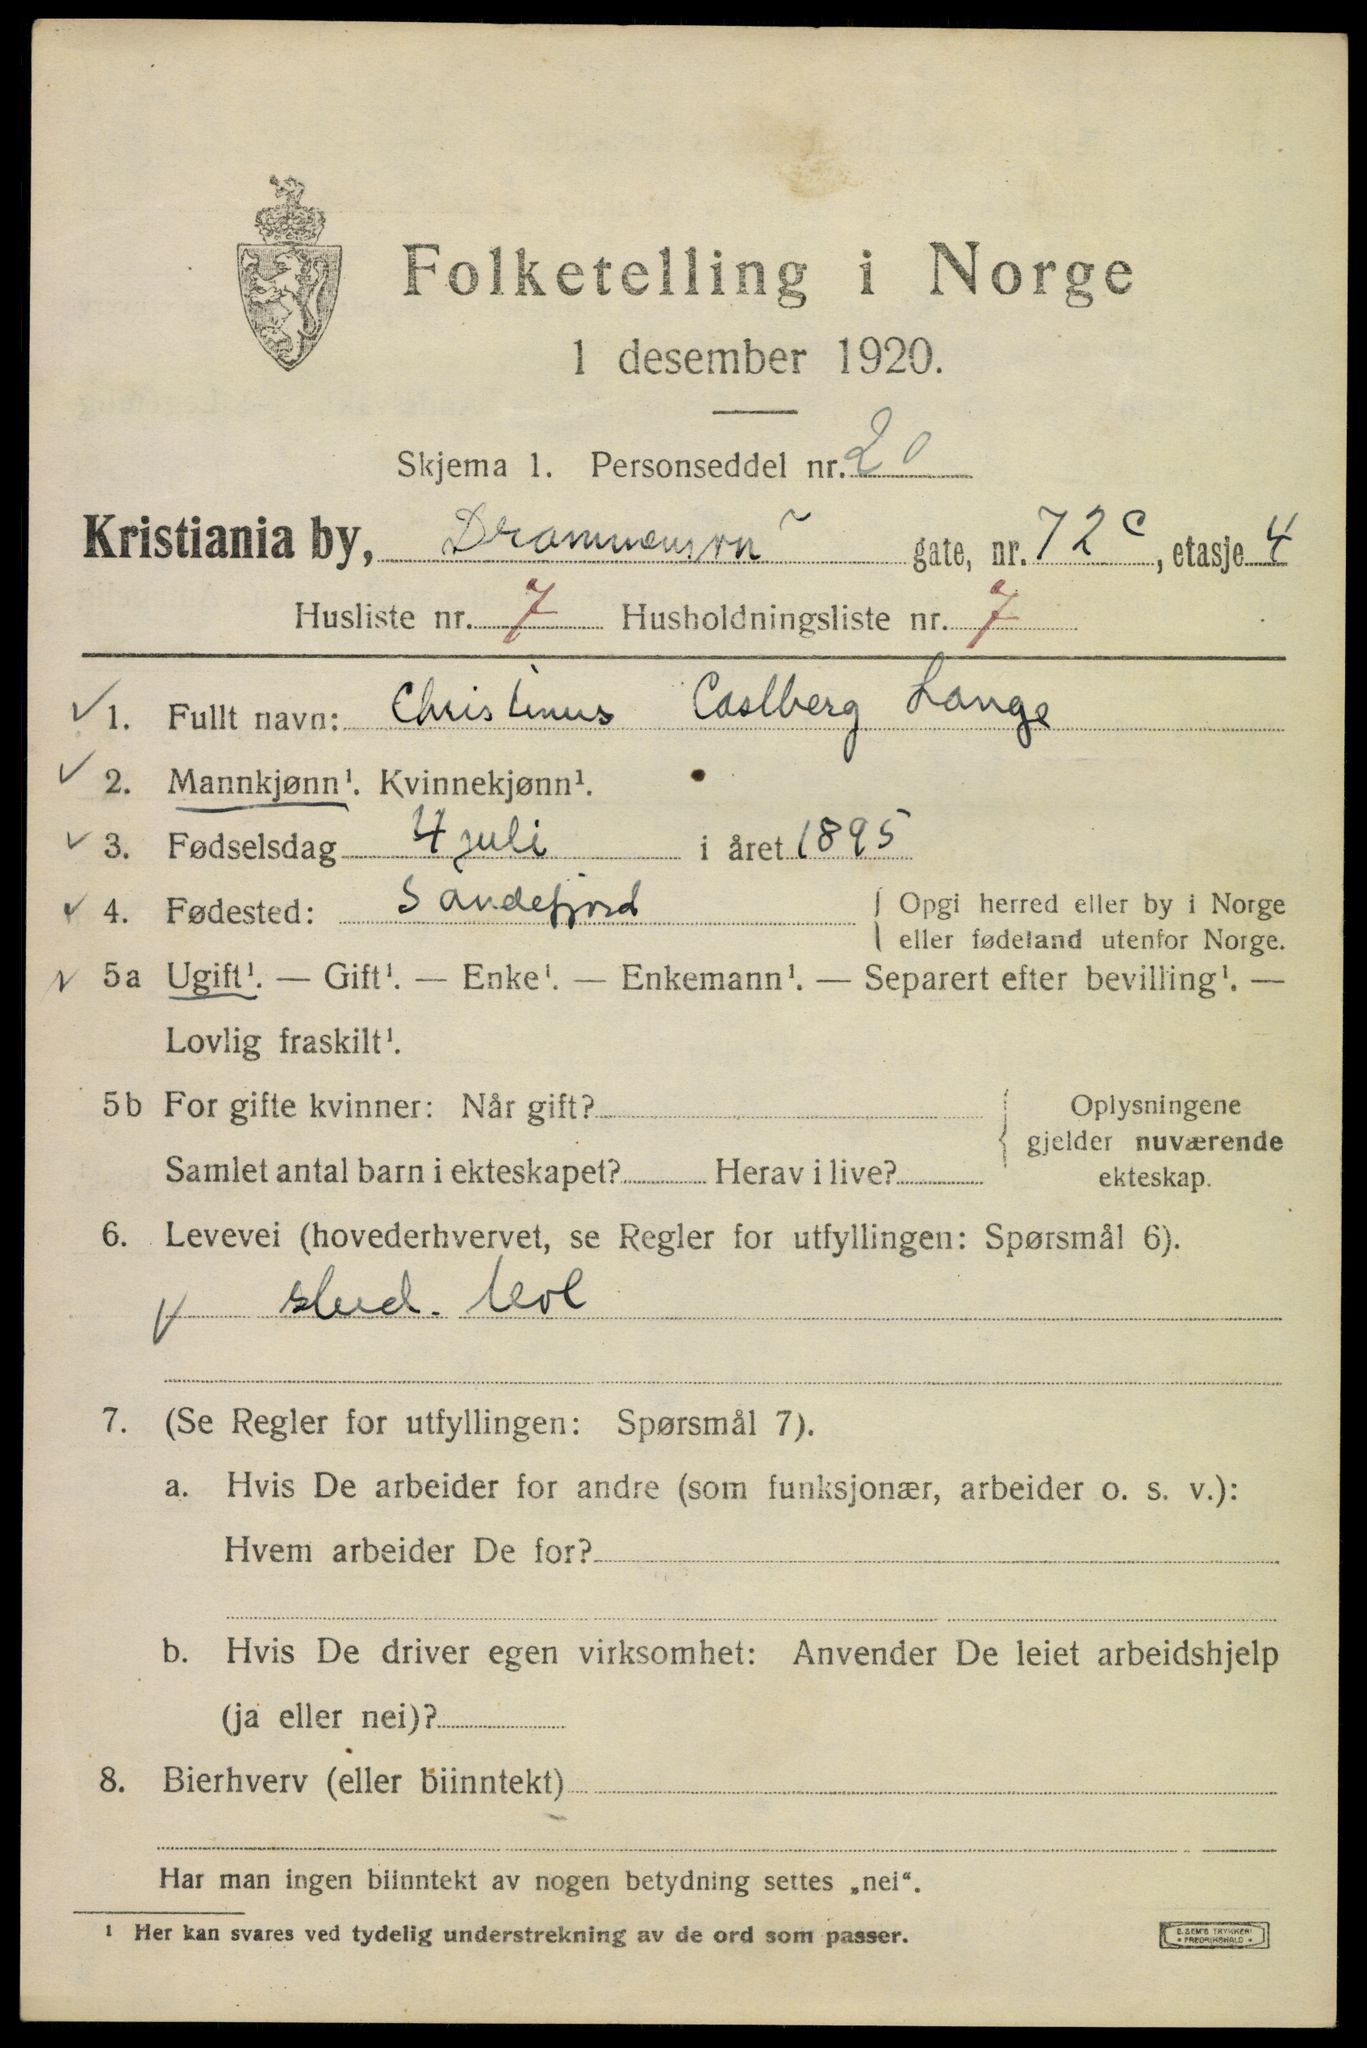 Folketelling i Norge
1 desember 1920.
Skjema 1. Personseddel nr. 20
Kristiania by, Drammensvn gate, nr. 72 c, etasje 4
Husliste nr. 7 Husholdningsliste nr. 7
1. Fullt navn: Christinus Castberg Lange
2. Mannkjønn¹. Kvinnekjønn¹.
3. Fødselsdag 4 juli i året 1895
4. Fødested: Sandefjord { Opgi herred eller by i Norge
eller fødeland utenfor Norge.
5a Ugift¹. — Gift¹. — Enke¹. — Enkemann¹. — Separert efter bevilling¹. —
Lovlig fraskilt¹.
5b For gifte kvinner: Når gift? { Oplysningene
gjelder nuværende
Samlet antal barn i ekteskapet? Herav i live? ekteskap.
6. Levevei (hovederhvervet, se Regler for utfyllingen: Spørsmål 6).
stud.
7. (Se Regler for utfyllingen: Spørsmål 7).
a. Hvis De arbeider for andre (som funksjonær, arbeider o. s. v.):
Hvem arbeider De for?
b. Hvis De driver egen virksomhet: Anvender De leiet arbeidshjelp
(ja eller nei)?
8. Bierhverv (eller biinntekt)
Har man ingen biinntekt av nogen betydning settes „nei“.
¹ Her kan svares ved tydelig understrekning av de ord som passer.
E. SEM'S TRYKKERI
FREDRIKSHALD